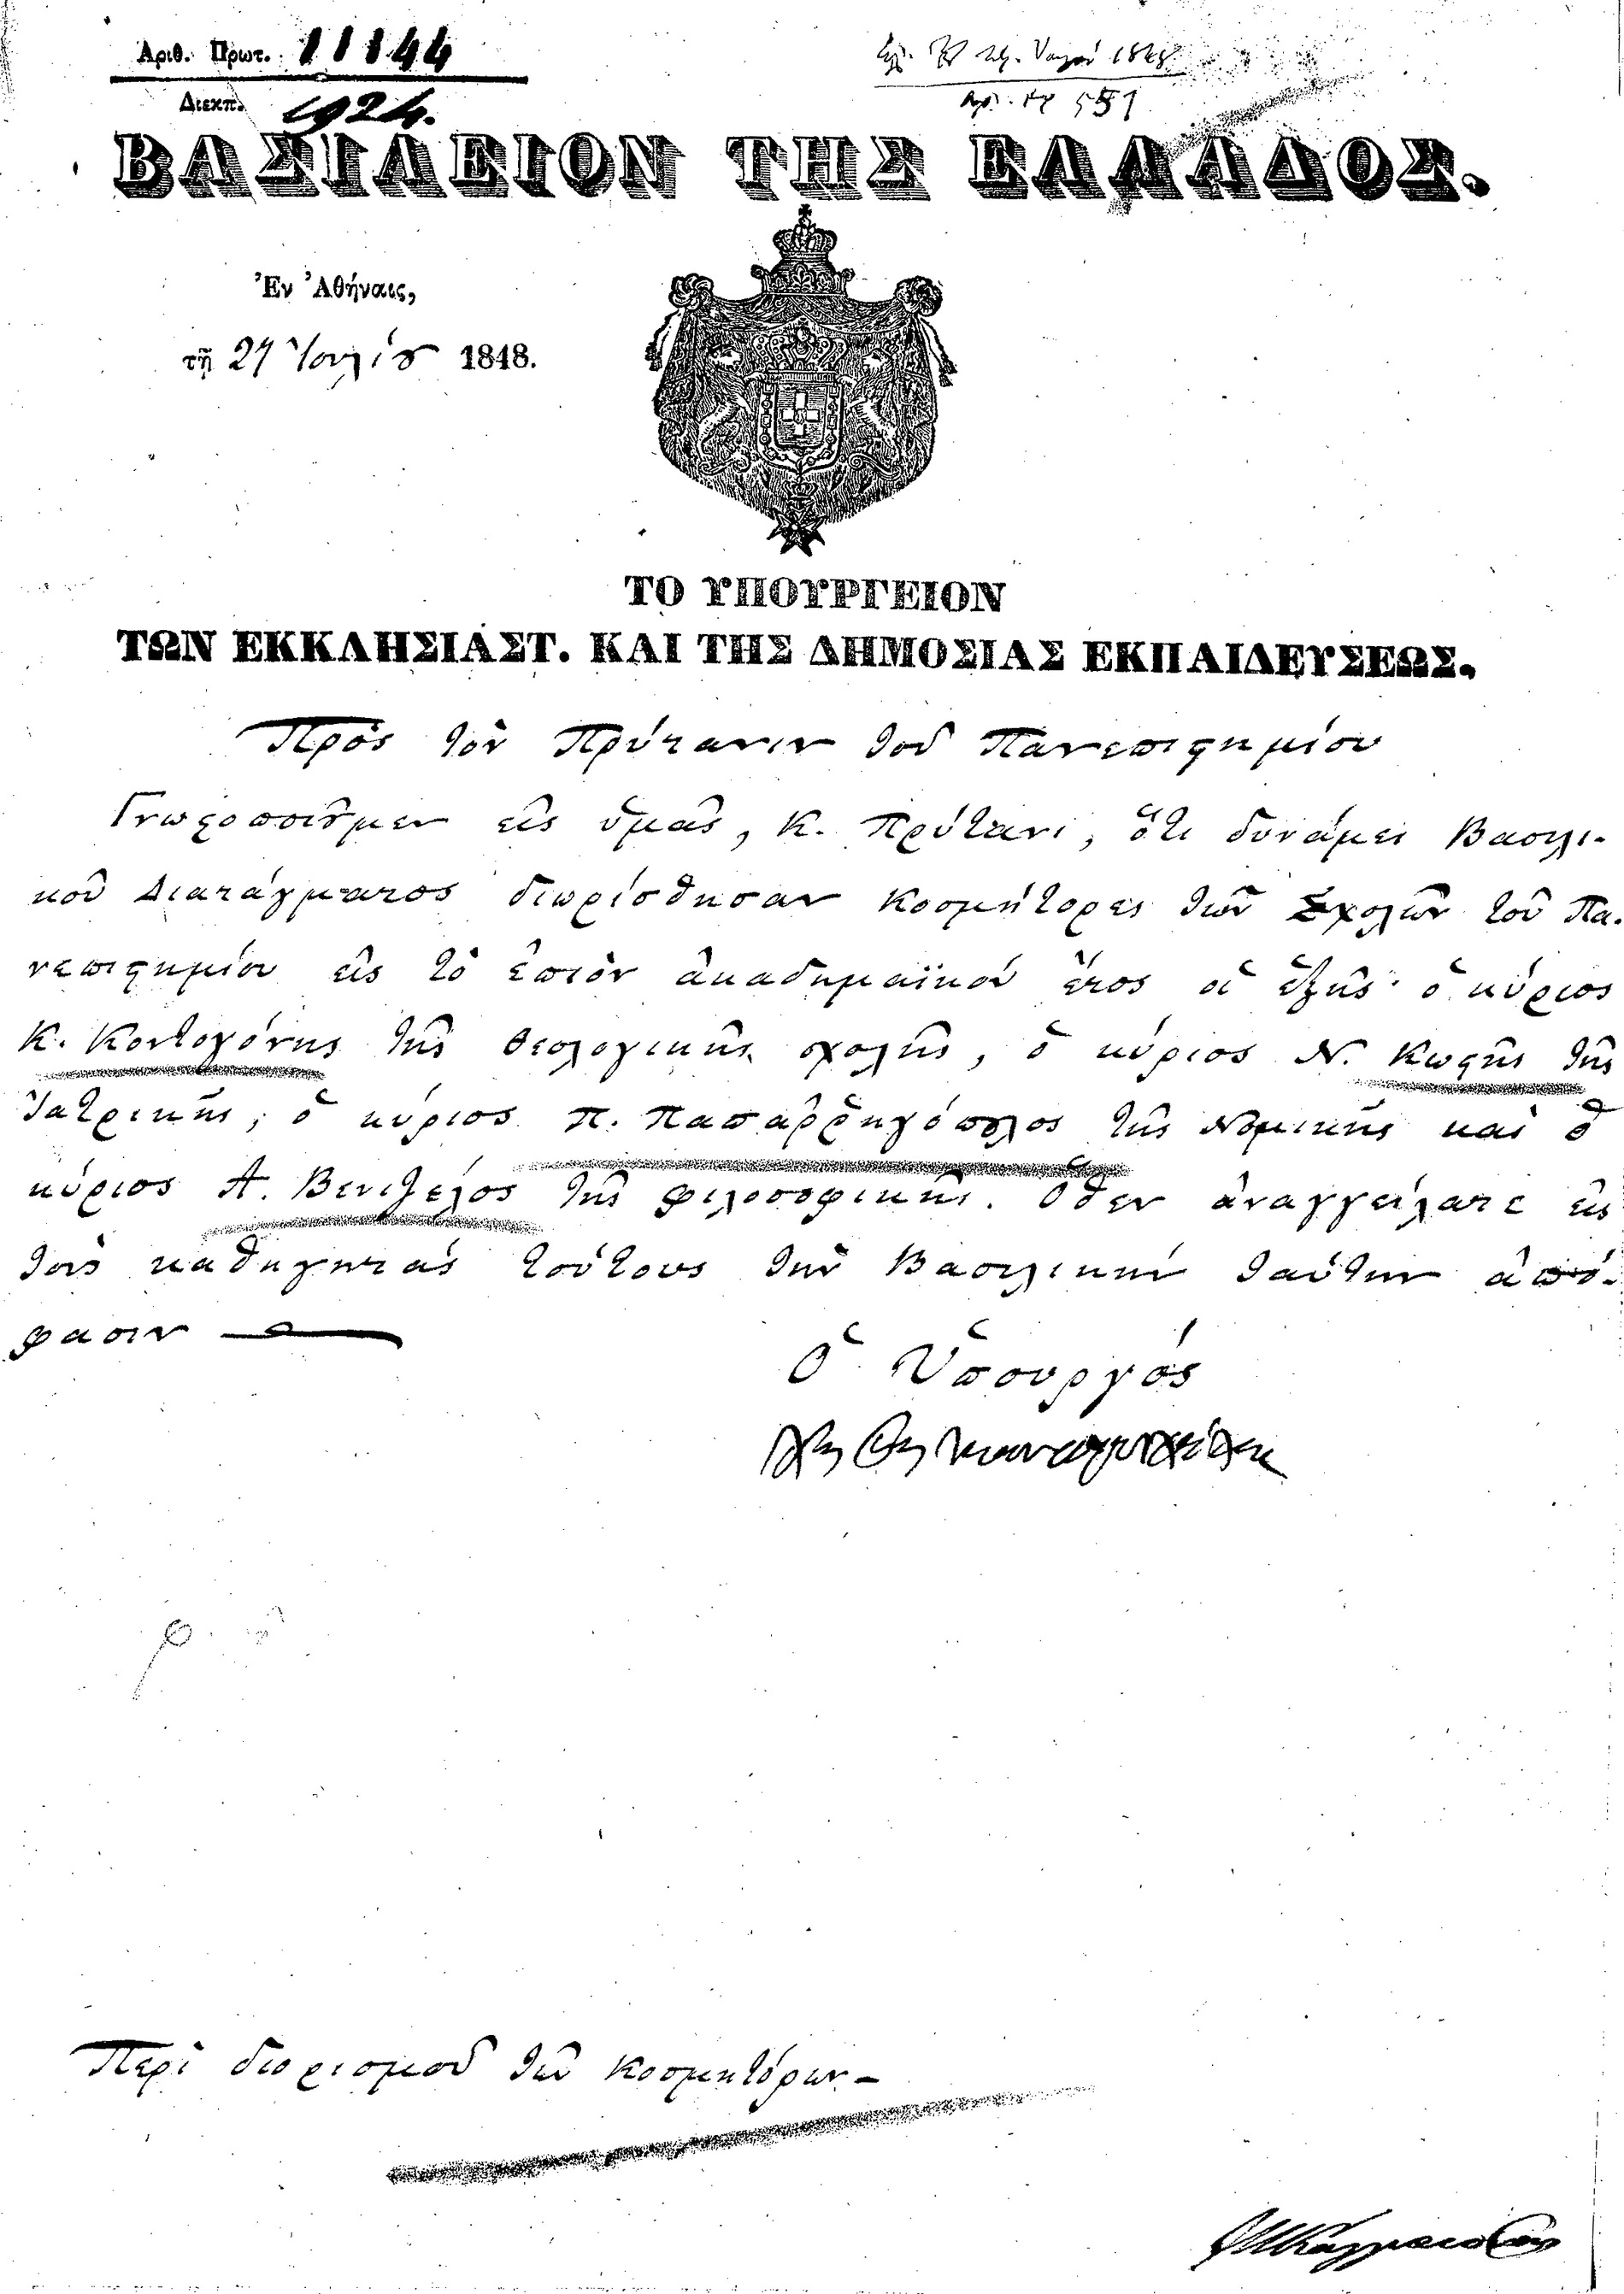 Ἀριθ. Πρωτ. 11844
Διεκπ. 1924.
1848
ΒΑΣΙΛΕΙΟΝ ΤΗΣ ΕΛΛΑΔΟΣ.
Ἐν Ἀθήναις,
τῇ 27 Ἰουλίου 1848.
ΤΟ ΥΠΟΥΡΓΕΙΟΝ
ΤΩΝ ΕΚΚΛΗΣΙΑΣΤ. ΚΑΙ ΤΗΣ ΔΗΜΟΣΙΑΣ ΕΚΠΑΙΔΕΥΣΕΩΣ.
Πρὸς τὸν Πρύτανιν τοῦ Πανεπιστημίου
Γνωστοποιοῦμεν εἰς ὑμᾶς, Κ. Πρύτανι, ὅτι δυνάμει Βασιλι-
κοῦ Διατάγματος διωρίσθησαν Κοσμήτορες τῶν Σχολῶν τοῦ Πα-
νεπιστημίου εἰς τὸ ἐπιὸν ἀκαδημαϊκὸν ἔτος οἱ ἑξῆς· ὁ κύριος
Κ. Κοντογόνης τῆς Θεολογικῆς σχολῆς, ὁ κύριος Ν. Κωστῆς τῆς
Ἰατρικῆς, ὁ κύριος Π. Παπαρρηγόπουλος τῆς Νομικῆς καὶ ὁ
κύριος Α. Βενιζέλος τῆς Φιλοσοφικῆς. Ὅθεν ἀναγγείλατε εἰς
τοὺς καθηγητὰς τούτους τὴν Βασιλικὴν ταύτην ἀπό-
φασιν
Ὁ Ὑπουργός
Περὶ διορισμοῦ τῶν Κοσμητόρων.-